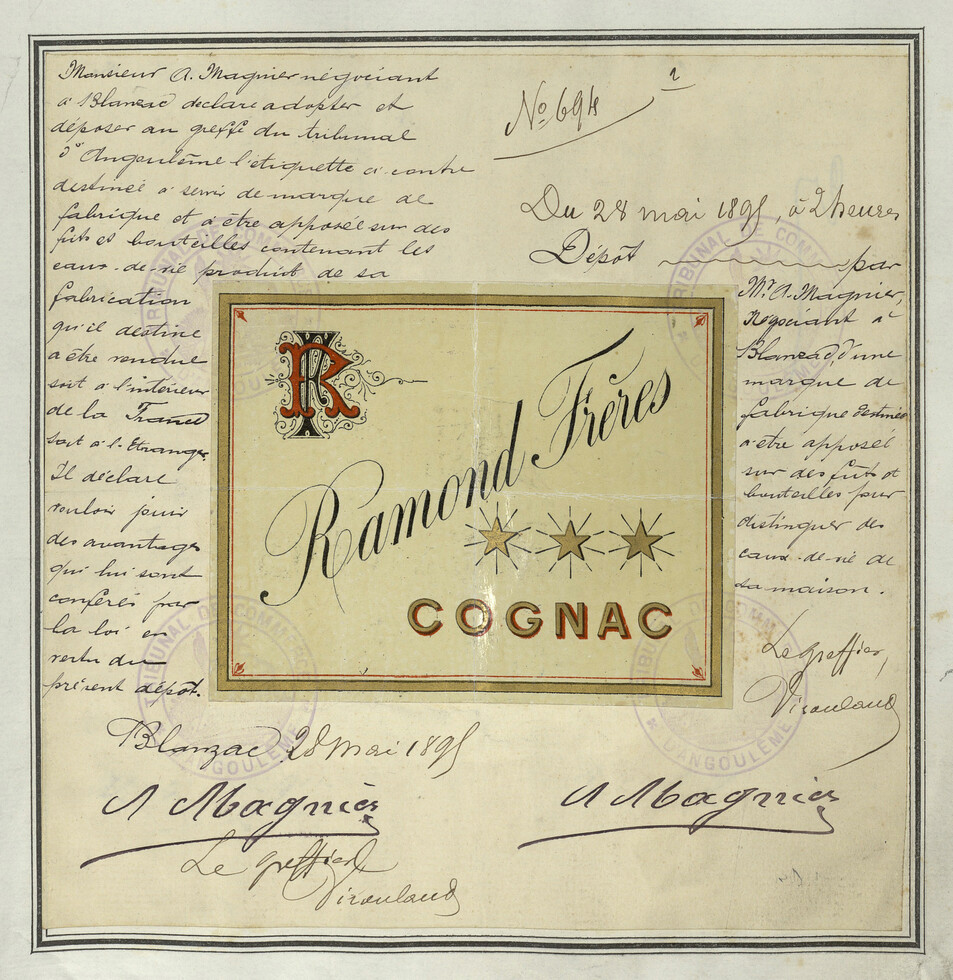 Monsieur A. Magnier négociant
à Blanzac declare adopter et
déposer au greffe du tribunal
d'Angoulême l'étiquette ci contre
destinée a servir de marque de
fabrique et a être apposée sur des
futs et bouteilles contenant les
eaux-de-vie produit de sa
fabrication
qu'il destine
a être vendue
soit a l'intérieur
de la France
soit a l'Etranger
Il déclare
vouloir jouir
des avantages
qui lui sont
conférés par
la loi en
vertu du
présent dépôt.
Blanzac 28 Mai 1895
A Magnier
Le greffier
Viroulaud
No 694
Du 28 mai 1895, à 2 heures
Dépôt par
Mr. A. Magnier,
Négociant à
Blanzac, d'une
marque de
fabrique destinée
a être apposée
sur des futs et
bouteilles pour
distinguer des
eaux-de-vie de
sa maison.
Le greffier,
Viroulaud
A Magnier
RF
Ramond Frères
COGNAC
TRIBUNAL DE COMMERCE
D'ANGOULÊME
TRIBUNAL DE COMMERCE
TRIBUNAL DE COMMERCE
D'ANGOULÊME